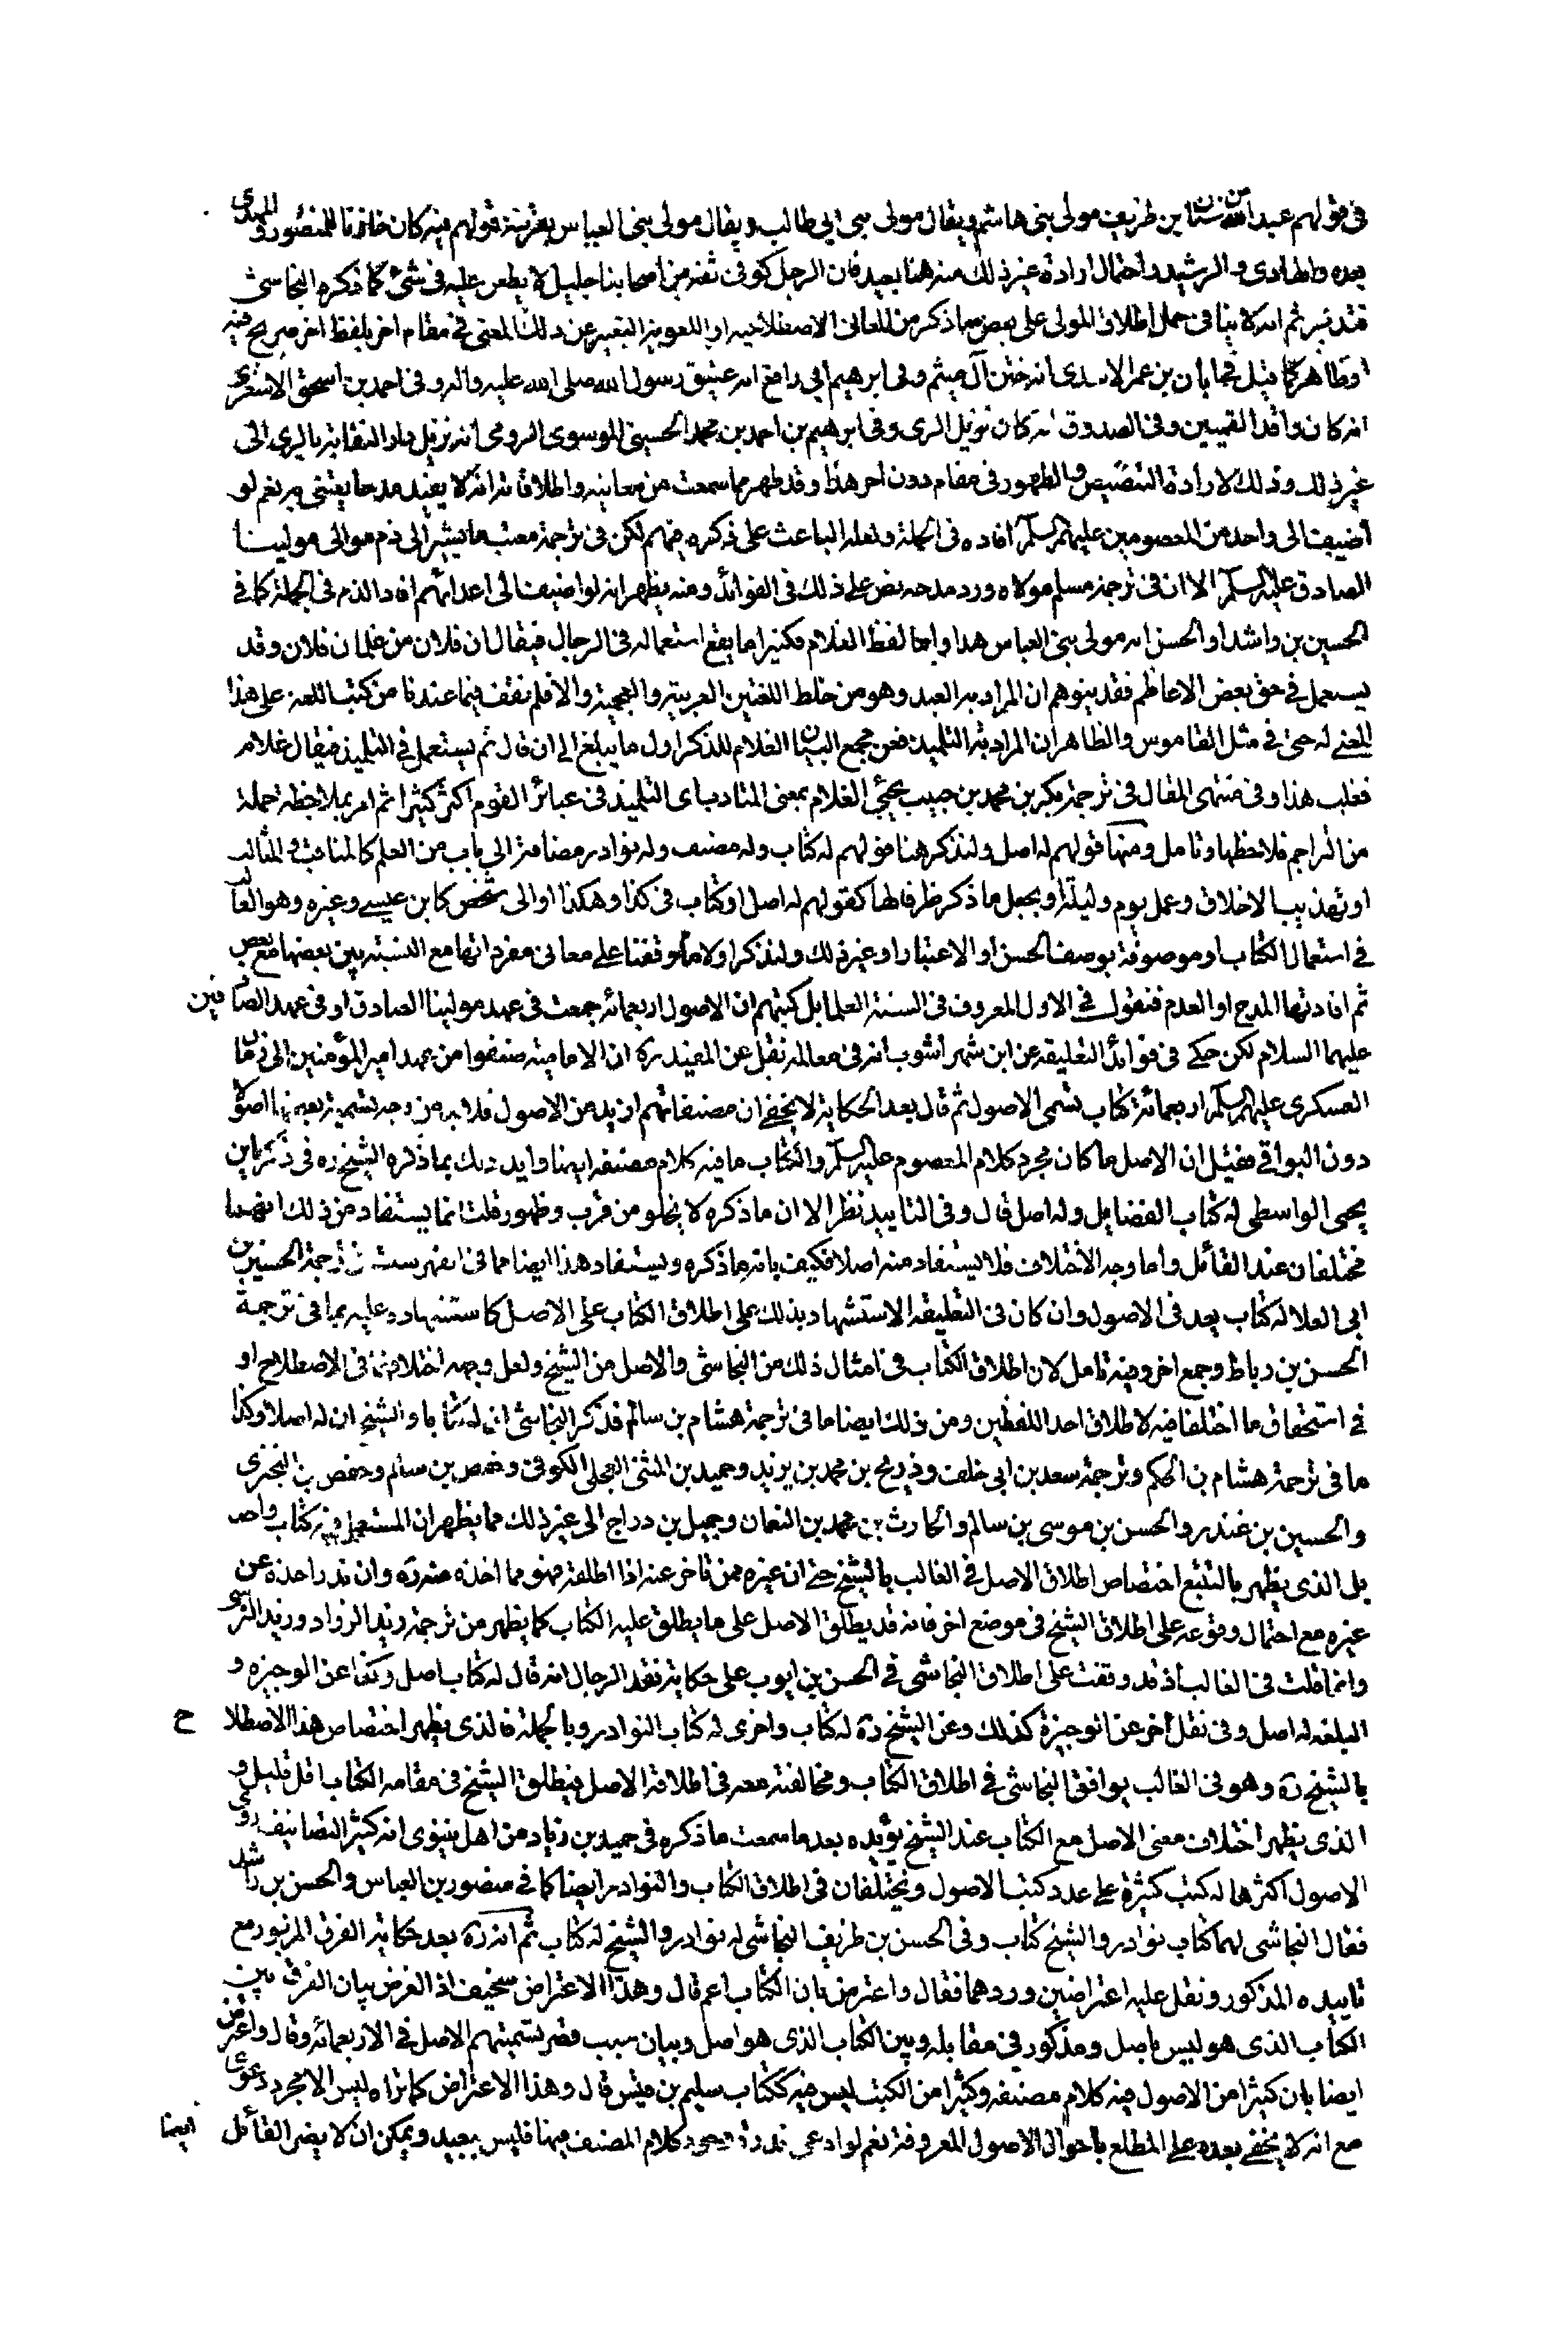 في قولهم عبد الله بن سنان بن طريف مولى بني هاشم ويقال مولى بني ابي طالب ويقال مولى بني العباس بقرينة قولهم فيه كان خازنا للمنصور والمهدي
بعده والهادي والرشيد واحتمال ارادة غير ذلك منه هنا بعيد فان الرجل كوفي ثقة من اصحابنا جليل لا يطعن عليه في شئ كما ذكره النجاشي
فتدبر ثم انه لا ينافي حمل اطلاق المولى على بعض ما ذكر من المعاني الاصطلاحيه او اللغويه التعبير عن ذلك المعنى في مقام اخر بلفظ اخر صريح فيه
او ظاهر كما قيل في ابان بن عمر الاسدى انه ختن آل ميثم وفى ابرهيم ابي رافع انه عتيق رسول الله صلى الله عليه واله وفى احمد بن اسحق الاشعرى
انه كان وافد القميين وفى الصدوق انه كان نزيل الرى وفى ابرهيم بن احمد بن محمد الحسينى الموسوى الرومى انه نزيل دار النقابة بالرى الى
غير ذلك وذلك لارادة التنصيص والظهور في مقام دون اخر هذا وقد ظهر مما سمعت من معانيه واطلاقاته انه لا يفيد مدحا يعتنى به نعم لو
اضيف الى واحد من المعصومين عليهم السلم افاده في الجملة ولعله الباعث على ذكره فيهم لكن في ترجمة معتب ما يشير الى ذم موالى مولينا
الصادق عليه السلم الا ان في ترجمة مسلم مولاه ورد مدحه نص على ذلك في الفوائد ومنه يظهر انه لو اضيف الى اعدائهم افاد الذم في الجملة كما في
الحسين بن راشد او الحسن انه مولى بني العباس هذا واما لفظ الغلام فكثيرا ما يقع استعماله في الرجال فيقال ان فلان من غلمان فلان وقد
يستعمل في حق بعض الاعاظم فقد يتوهم ان المراد به العبد وهو من خلط اللغتين العربية والعجمية والا فلم نقف فيما عندنا من كتب اللغة على هذا
المعنى له حتى في مثل القاموس والظاهر ان المراد به التلميذ فعن مجمع البيان الغلام للذكر اول ما يبلغ الى ان قال ثم يستعمل في التلميذ فيقال غلام
فعلب هذا وفي منتهى المقال في ترجمة بكر بن محمد بن حبيب يجئ الغلام بمعنى المتادب اى التلميذ في عبائر القوم اكثر كثيرا ثم امر بملاحظة جملة
من التراجم فلاحظها وتامل ومنها قولهم له اصل ولنذكر هنا قولهم له كتاب وله مصنف وله نوادر مضافة الى باب من العلم كالمناقب والمثالب
او تهذيب الاخلاق وعمل يوم وليلة او بجعل ما ذكر ظرفا لها كقولهم له اصل او كتاب في كذا وهكذا او الى شخص كابن عيسى وغيره وهو الغالب
في استعمال الكتاب او موصوفة بوصف الحسن او الاعتبار او غير ذلك ولنذكر اولا ما وقفنا على معانى مفرداتها مع النسبة بين بعضها مع بعض
ثم افادتها المدح او العدم فنقول في الاول المعروف في السنة العلما بل كتبهم ان الاصول اربعمائه جمعت في عهد مولينا الصادق او في عهد الصادقين
عليهما السلام لكن حكي في فوائد التعليقه عن ابن شهر اشوب انه في معالمه نقل عن المفيد ره ان الامامية صنفوا من عهد امير المؤمنين الى زمان
العسكرى عليهم السلم اربعمائة كتاب تسمى الاصول ثم قال بعد الحكاية لا يخفى ان مصنفاتهم ازيد من الاصول فلابد من وجه تسمية بعضها اصولا
دون البواقي فقيل ان الاصل ما كان مجرد كلام المعصوم عليه السلم والكتاب ما فيه كلام مصنفه ايضا وايد ذلك بما ذكره الشيخ ره في زكريا بن
يحيى الواسطى له كتاب الفضايل وله اصل قال وفي التاييد نظر الا ان ما ذكره لا يخلو من قرب وظهور قلت انما يستفاد من ذلك انهما
مختلفان عند القائل واما وجه الاختلاف فلا يستفاد منه اصلا فكيف بانه ما ذكره ويستفاد هذا ايضا مما في الفهرست في ترجمة الحسين بن
ابى العلا له كتاب يعد في الاصول وان كان في التعليقه الاستشهاد بذلك على اطلاق الكتاب على الاصل كاستشهاده عليه بما في ترجمة
الحسن بن رباط وجمع اخر وفيه تامل لان اطلاق الكتاب في امثال ذلك من النجاشى والاصل من الشيخ ولعل وجهه اختلافهما في الاصطلاح او
في استحقاق ما اختلفا فيه لاطلاق احد اللفظين ومن ذلك ايضا ما في ترجمة هشام بن سالم فذكر النجاشى ان له كتابا والشيخ ان له اصلا وكذا
ما في ترجمة هشام بن الحكم وترجمة سعد بن ابى خلف وذريح بن محمد بن يزيد وحميد بن المثنى العجلى الكوفى وحفص بن سالم وحفص بن البخترى
والحسين بن غندر والحسن بن موسى بن سالم والحارث بن محمد بن النعمان وجميل بن دراج الى غير ذلك مما يظهر ان المستعمل فيه كتاب واحد
بل الذى يظهر بالتتبع اختصاص اطلاق الاصل في الغالب بالشيخ حتى ان غيره ممن تاخر عنه اذا اطلقه فهو مما اخذه منه ره وان ندر اخذه عن
غيره مع احتمال وقوعه على اطلاق الشيخ في موضع اخر فانه قد يطلق الاصل على ما يطلق عليه الكتاب كما يظهر من ترجمة زيد الزراد وزيد النرسى
وانما قلت في الغالب اذ قد وقفت على اطلاق النجاشى في الحسن بن ايوب على حكاية نقد الرجال انه قال له كتاب اصل وكذا عن الوجيزه و
البلغه له اصل وفي نقل اخر عن الوجيزة كذلك وعن الشيخ ره له كتاب واخرى له كتاب النوادر وبالجملة فالذى يظهر اختصاص هذا الاصطلاح
بالشيخ ره وهو في الغالب يوافق النجاشى في اطلاق الكتاب ومخالفته معه في اطلاقه الاصل فيطلق الشيخ في مقامه الكتاب اقل قليل و
الذى يظهر اختلاف معنى الاصل مع الكتاب عند الشيخ يؤيده بعد ما سمعت ما ذكره في حميد بن زياد من اهل نينوى انه كثير التصانيف روى
الاصول اكثرها له كتب كثيرة على عدد كتب الاصول ويختلفان في اطلاق الكتاب والنوادر ايضا كما في منصور بن العباس والحسن بن راشد
فقال النجاشى لهما كتاب نوادر والشيخ كتاب وفى الحسن بن ظريف النجاشى له نوادر والشيخ له كتاب ثم انه ره بعد حكاية الفرق المزبور مع
تاييده المذكور ونقل عليه اعتراضين وردهما فقال واعترض بان الكتاب اعم قال وهذا الاعتراض سخيف اذ الغرض بيان الفرق بين
الكتاب الذى هو ليس باصل ومذكور في مقابله وبين الكتاب الذى هو اصل وبيان سبب قصر تسميتهم الاصل في الاربعمائه وقال واعترض
ايضا بان كثيرا من الاصول فيه كلام مصنفه وكثيرا من الكتب ليس فيه ككتاب سليم بن قيس قال وهذا الاعتراض كما تراه ليس الا مجرد دعوى
مع انه لا يخفى بعده على المطلع باحوال الاصول المعروفة نعم لو ادعى ندرة وجود كلام المصنف فيها فليس ببعيد ويمكن ان لا يضر القائل ايضا